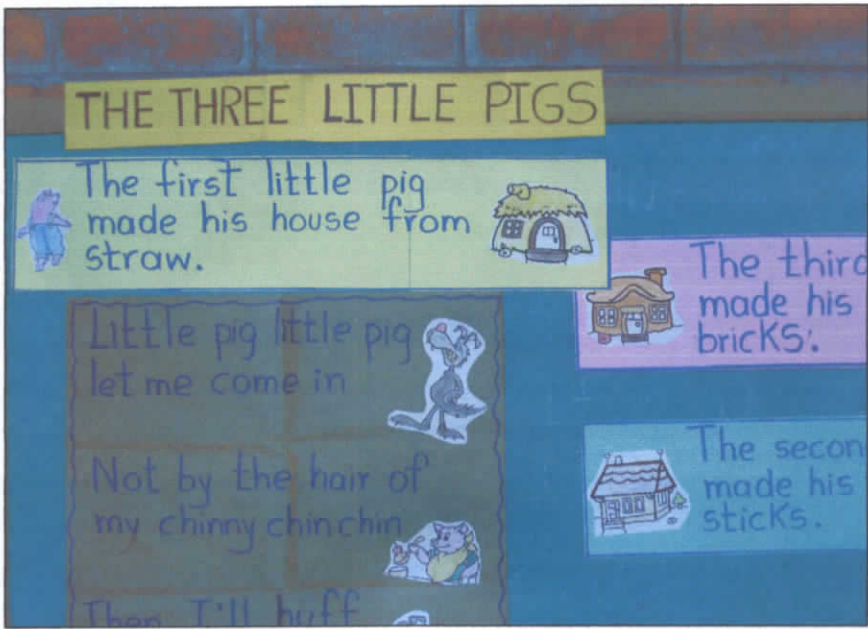 THE THREE LITTLE PIGS
The first little pig
made his house from
straw.
Little pig little pig
let me come in
Not by the hair of
my chinny chin chin
Then I'll huff
The third
made his
bricks.
The secon
made his
sticks.